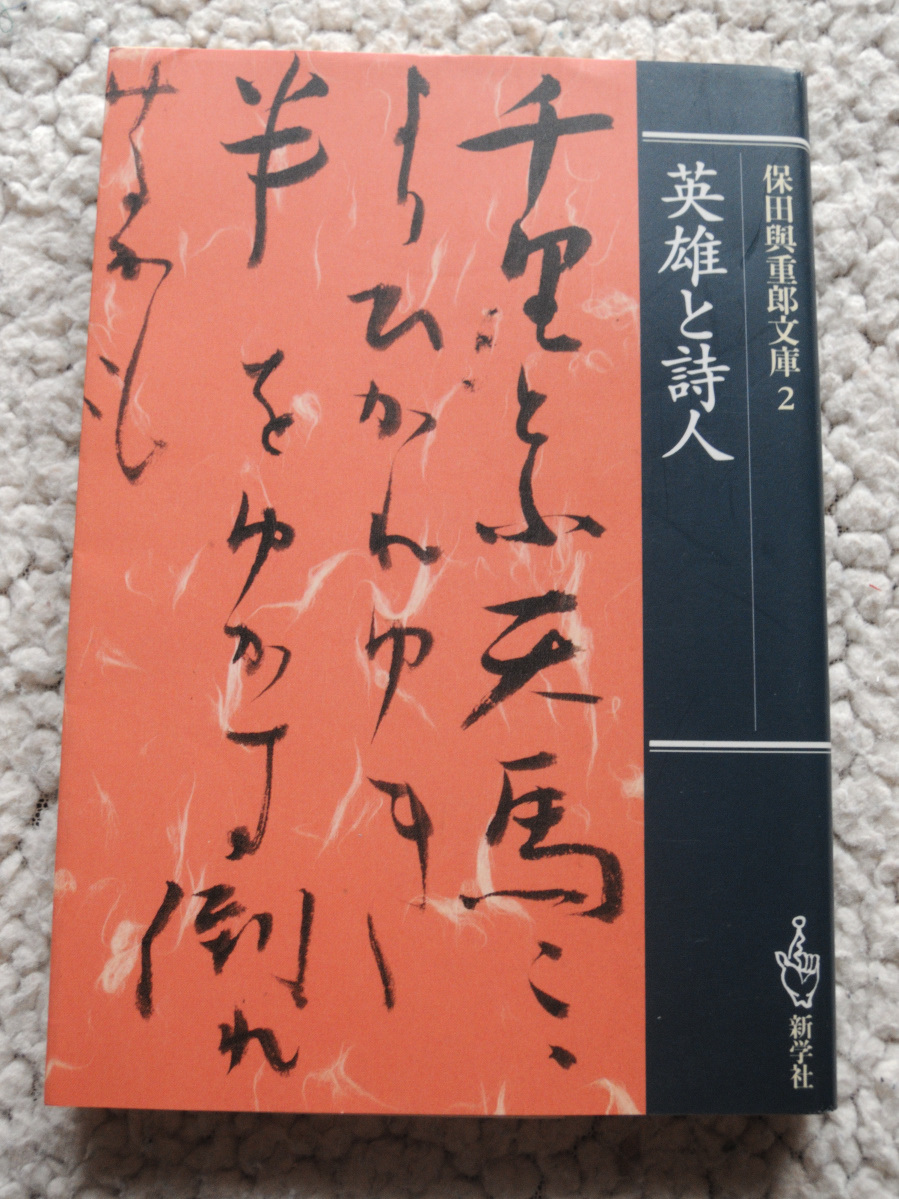 保田與重郎文庫 2
英雄と詩人
新学社
千里とふ天馬こゝ
よりひかれゆきし
半をゆかず倒れ
るかも